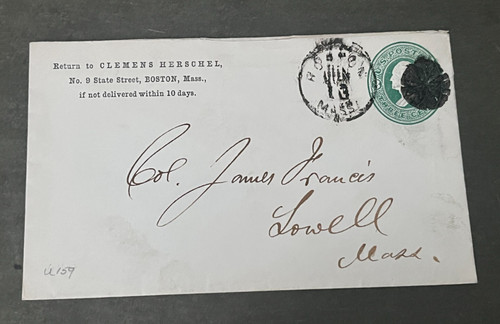 Return to CLEMENS HERSCHEL,
No. 9 State Street, BOSTON, Mass.,
if not delivered within 10 days.
BOSTON
JUN
13
MASS.
U.S. POST
THREE
Col. James Francis
Lowell
Mass.
U159